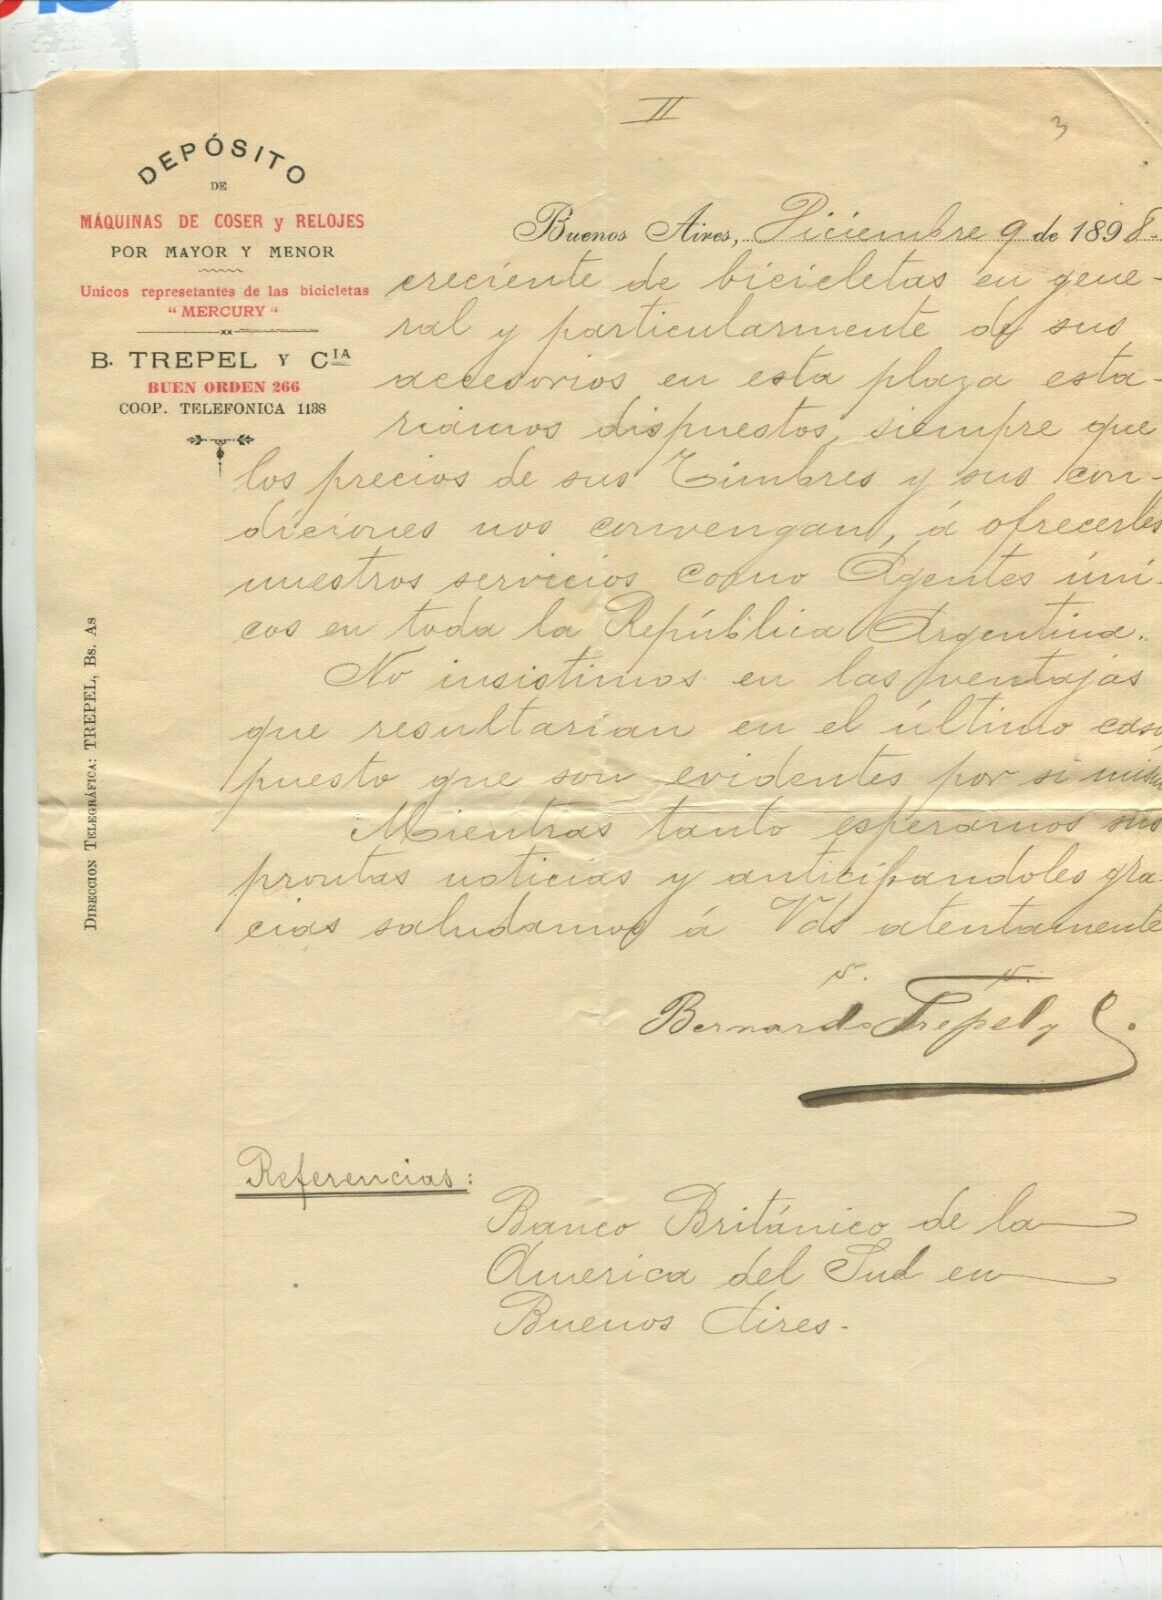 II
3
DEPÓSITO
DE
MÁQUINAS DE COSER y RELOJES
POR MAYOR Y MENOR
Unicos represetantes de las bicicletas
"MERCURY"
B. TREPEL Y CIA
BUEN ORDEN 266
COOP. TELEFONICA 1138
DIRECCION TELEGRÁFICA: TREPEL, Bs. As
Buenos Aires, Diciembre 9 de 1898.
creciente de bicicletas en gene-
ral y particularmente de sus
accesorios en esta plaza esta-
riamos dispuestos, siempre que
los precios de sus Timbres y sus con-
diciones nos convengan, á ofrecerles
nuestros servicios como Agentes úni-
cos en toda la República Argentina.
No insistimos en las ventajas
que resultarian en el último caso,
puesto que son evidentes por si
Mientras tanto esperamos sus
prontas noticias y anticipandoles gra-
cias saludamos á Vds atentamente
Bernardo Trepel y C.
Referencias:
Banco Británico de la
America del Sud en
Buenos Aires.-